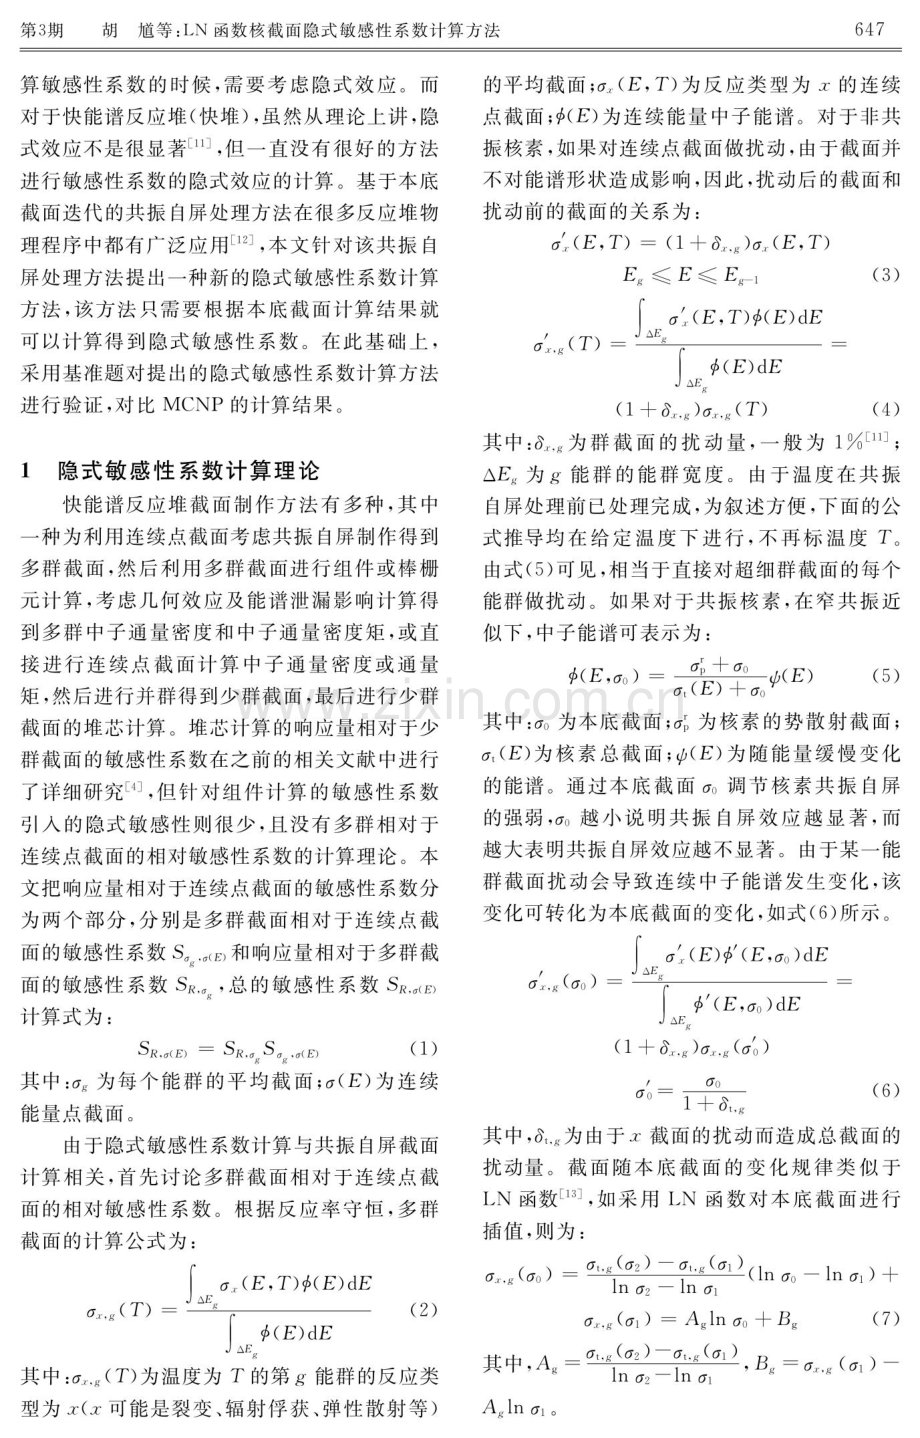 第3期　　胡　馗等:LN 函数核截面隐式敏感性系数计算方法　　647
算敏感性系数的时候,需要考虑隐式效应。而
对于快能谱反应堆(快堆),虽然从理论上讲,隐
式效应不是很显著[11],但一直没有很好的方法
进行敏感性系数的隐式效应的计算。基于本底
截面迭代的共振自屏处理方法在很多反应堆物
理程序中都有广泛应用[12],本文针对该共振自
屏处理方法提出一种新的隐式敏感性系数计算
方法,该方法只需要根据本底截面计算结果就
可以计算得到隐式敏感性系数。在此基础上,
采用基准题对提出的隐式敏感性系数计算方法
进行验证,对比 MCNP 的计算结果。
1　隐式敏感性系数计算理论
快能谱反应堆截面制作方法有多种,其中
一种为利用连续点截面考虑共振自屏制作得到
多群截面,然后利用多群截面进行组件或棒栅
元计算,考虑几何效应及能谱泄漏影响计算得
到多群中子通量密度和中子通量密度矩,或直
接进行连续点截面计算中子通量密度或通量
矩,然后进行并群得到少群截面,最后进行少群
截面的堆芯计算。堆芯计算的响应量相对于少
群截面的敏感性系数在之前的相关文献中进行
了详细研究[4],但针对组件计算的敏感性系数
引入的隐式敏感性则很少,且没有多群相对于
连续点截面的相对敏感性系数的计算理论。本
文把响应量相对于连续点截面的敏感性系数分
为两个部分,分别是多群截面相对于连续点截
面的敏感性系数 S_{σ_g,σ(E)} 和响应量相对于多群截
面的敏感性系数 S_{R,σ_g},总的敏感性系数 S_{R,σ(E)}
计算式为:
S_{R,σ(E)} = S_{R,σ_g} S_{σ_g,σ(E)} (1)
其中:σ_g 为每个能群的平均截面;σ(E)为连续
能量点截面。
由于隐式敏感性系数计算与共振自屏截面
计算相关,首先讨论多群截面相对于连续点截
面的相对敏感性系数。根据反应率守恒,多群
截面的计算公式为:
σ_{x,g}(T) = ∫_{ΔE_g} σ_x(E,T)ϕ(E)dE / ∫_{ΔE_g} ϕ(E)dE (2)
其中:σ_{x,g}(T)为温度为 T 的第 g 能群的反应类
型为 x(x 可能是裂变、辐射俘获、弹性散射等)
的平均截面;σ_x(E,T)为反应类型为 x 的连续
点截面;ϕ(E)为连续能量中子能谱。对于非共
振核素,如果对连续点截面做扰动,由于截面并
不对能谱形状造成影响,因此,扰动后的截面和
扰动前的截面的关系为:
σ′_x(E,T) = (1+δ_{x,g})σ_x(E,T)
E_g ≤ E ≤ E_{g−1} (3)
σ′_{x,g}(T) = ∫_{ΔE_g} σ′_x(E,T)ϕ(E)dE / ∫_{ΔE_g} ϕ(E)dE =
(1+δ_{x,g})σ_{x,g}(T) (4)
其中:δ_{x,g}为群截面的扰动量,一般为 1%[11];
ΔE_g 为 g 能群的能群宽度。由于温度在共振
自屏处理前已处理完成,为叙述方便,下面的公
式推导均在给定温度下进行,不再标温度 T。
由式(5)可见,相当于直接对超细群截面的每个
能群做扰动。如果对于共振核素,在窄共振近
似下,中子能谱可表示为:
ϕ(E,σ_0) = (σ_p^r + σ_0) / (σ_t(E) + σ_0) ψ(E) (5)
其中:σ_0 为本底截面;σ_p^r 为核素的势散射截面;
σ_t(E)为核素总截面;ψ(E)为随能量缓慢变化
的能谱。通过本底截面 σ_0 调节核素共振自屏
的强弱,σ_0 越小说明共振自屏效应越显著,而
越大表明共振自屏效应越不显著。由于某一能
群截面扰动会导致连续中子能谱发生变化,该
变化可转化为本底截面的变化,如式(6)所示。
σ′_{x,g}(σ_0) = ∫_{ΔE_g} σ′_x(E)ϕ′(E,σ_0)dE / ∫_{ΔE_g} ϕ′(E,σ_0)dE =
(1+δ_{x,g})σ_{x,g}(σ′_0)
σ′_0 = σ_0 / (1+δ_{t,g}) (6)
其中,δ_{t,g}为由于 x 截面的扰动而造成总截面的
扰动量。截面随本底截面的变化规律类似于
LN 函数[13],如采用 LN 函数对本底截面进行
插值,则为:
σ_{x,g}(σ_0) = (σ_{t,g}(σ_2)−σ_{t,g}(σ_1)) / (ln σ_2 − ln σ_1) (ln σ_0 − ln σ_1) +
σ_{x,g}(σ_1) = A_g ln σ_0 + B_g (7)
其中,A_g = (σ_{t,g}(σ_2)−σ_{t,g}(σ_1)) / (ln σ_2−ln σ_1),B_g = σ_{x,g}(σ_1) −
A_g ln σ_1。
www.zixin.com.cn